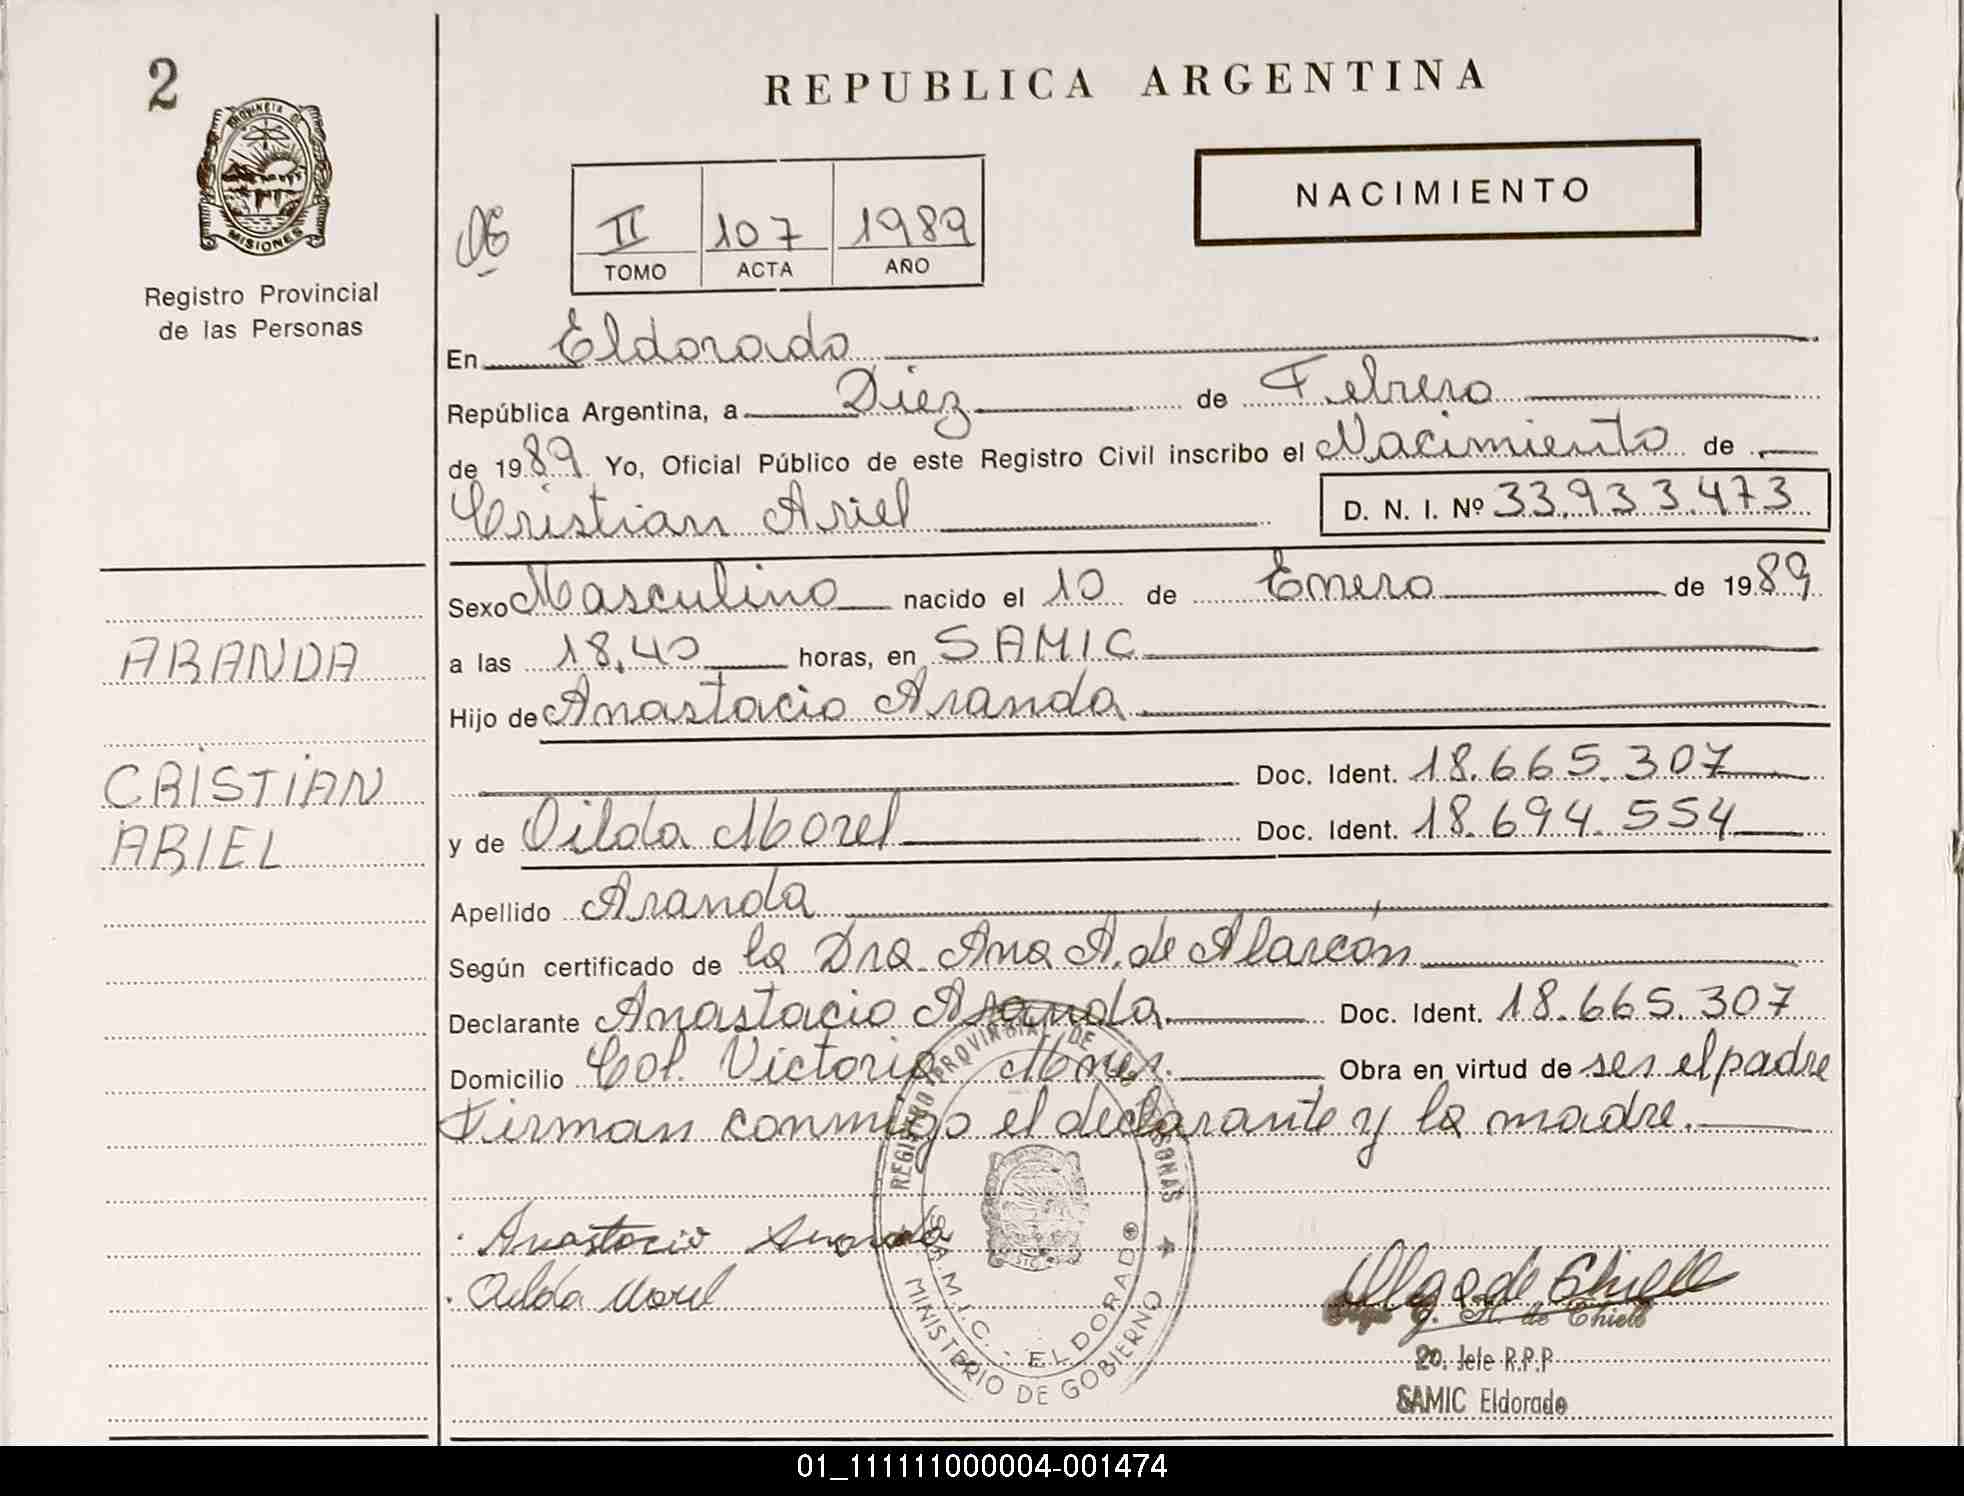 2
PROVINCIA DE
MISIONES
Registro Provincial
de las Personas
REPUBLICA ARGENTINA
NACIMIENTO
II 107 1989
TOMO ACTA AÑO
En Eldorado
República Argentina, a Diez de Febrero
de 1989. Yo, Oficial Público de este Registro Civil inscribo el Nacimiento de
Cristian Ariel D. N. I. Nº 33.933.473
Sexo Masculino nacido el 10 de Enero de 1989
a las 18,40 horas, en SAMIC
Hijo de Anastacio Aranda
Doc. Ident. 18.665.307
y de Oilda Morel Doc. Ident. 18.694.554
Apellido Aranda
Según certificado de la Dra. Ana A. de Alarcón
Declarante Anastacio Aranda Doc. Ident. 18.665.307
Domicilio Col. Victoria Mnes. Obra en virtud de ser el padre
Firman conmigo el declarante y la madre.
ARANDA
CRISTIAN
ARIEL
Anastacio Aranda
Oilda Morel
REGISTRO PROVINCIAL DE PERSONAS
S.A.M.I.C. - ELDORADO
MINISTERIO DE GOBIERNO
Olga de Chiele
H. de Chiele
2o. Jefe R.P.P
SAMIC Eldorado
01_111111000004-001474